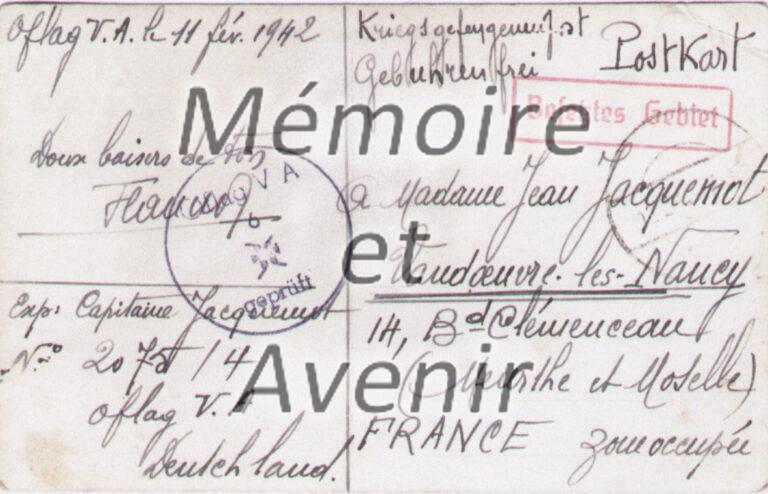 Oflag V.A. le 11 fév. 1942
Doux baisers de ton
Exp: Capitaine Jacquemot
N° 2075 / 4
Oflag V.A
Deutchland.
Kriegsgefengenen Post
Gebuhren frei
PostKart
Besetztes Gebiet
Oflag V A
6
geprüft
a Madame Jean Jacquemot
Vandœuvre-les-Nancy
14, Bd Clémenceau
(Meurthe et Moselle)
FRANCE zone occupée
Mémoire
et
Avenir